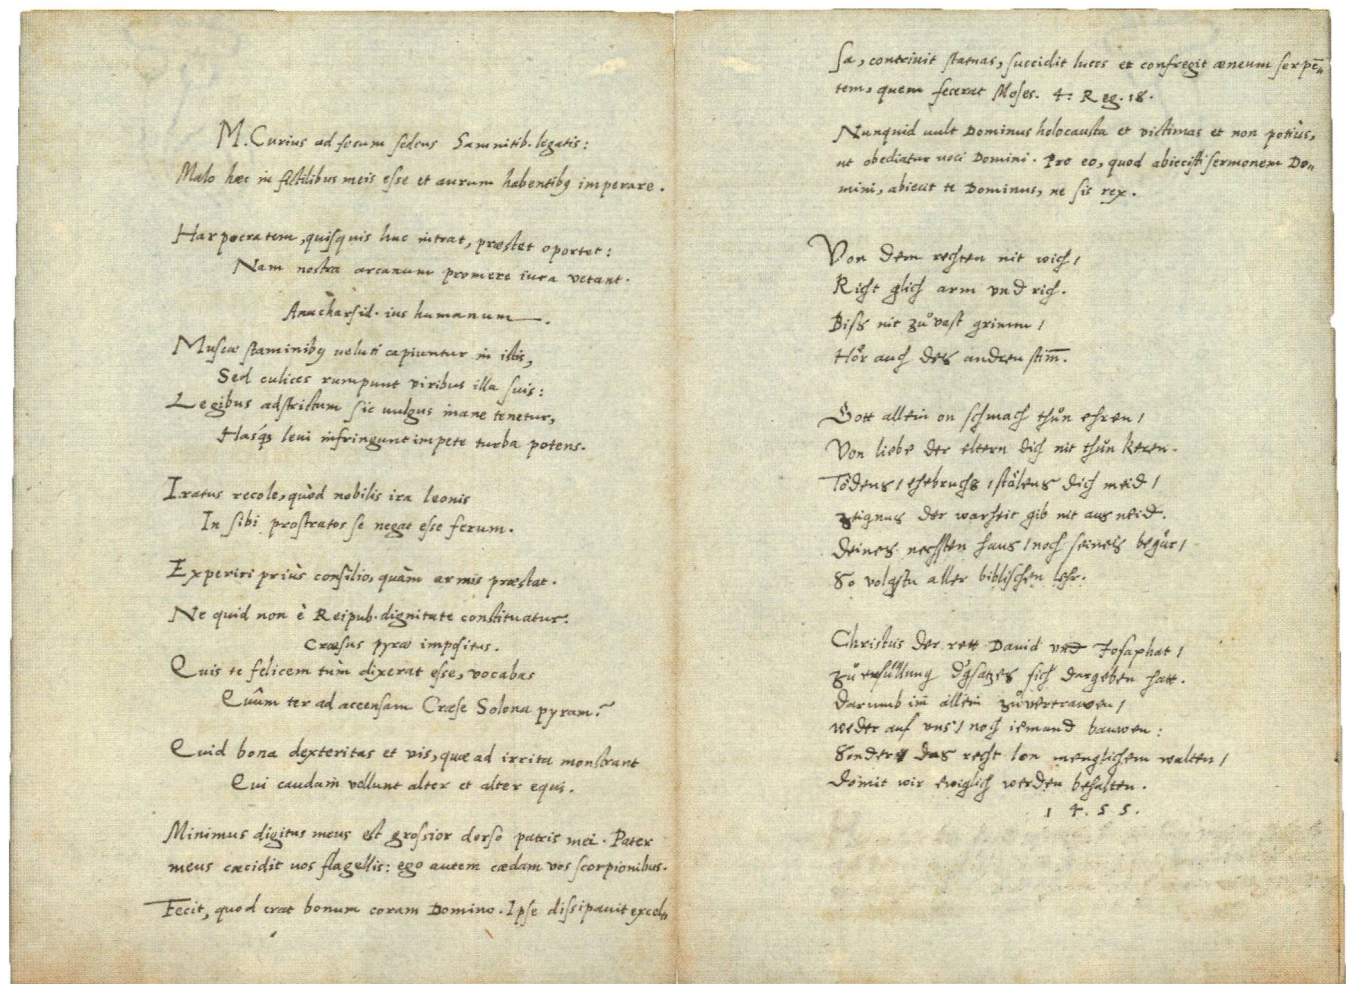 M. Curius ad focum sedens Samnitib. legatis:
Malo hæc in fictilibus meis esse et aurum habentibꝫ imperare.
Harpocratem, quisquis huc intrat, præstet oportet:
Nam nostra arcanum promere iura vetant.
Anacharsid. ius humanum.
Muscæ staminibꝫ veluti capiuntur in istis,
Sed culices rumpunt viribus illa suis:
Legibus adstrictum sic vulgus inane tenetur,
Hasqꝫ leui infringunt impete turba potens.
Iratus recole, quòd nobilis ira leonis
In sibi prostratos se negat esse ferum.
Experiri priùs consilio, quàm armis præstat.
Ne quid non è Reipub. dignitate constituatur.
Cræsus pyræ impositus.
Quis te felicem tùm dixerat esse, vocabas
Quùm ter ad accensam Cræse Solona pyram?
Quid bona dexteritas et vis, quæ ad irrita monstrant
Qui caudam vellunt alter et alter equi.
Minimus digitus meus est grossior dorso patris mei. Pater
meus cæcidit uos flagellis: ego autem cædam vos scorpionibus.
Fecit, quod erat bonum coram Domino. Ipse dissipauit excel„
sa, contriuit statuas, succidit lucos et confregit æneum serpē„
tem, quem fecerat Moses. 4. Reg. 18.
Nunquid uult Dominus holocausta et victimas et non potiùs,
ut obediatur uoci Domini. Pro eo, quod abiecisti sermonem Do„
mini, abiecit te Dominus, ne sis rex.
Von dem rechten nit wich/
Richt glich arm vnd rich.
Biss nit zů vast grimm/
Hör auch des andren stim̄.
Gott allein on schmach thůn ehren/
Von liebe der eltern dich nit thůn keren.
Tödens/ ehebruchs/ stälens dich meid/
zeignus der warheit gib nit aus neid.
deines nechsten haus/ noch seines begär/
So volgstu aller biblischen lehr.
Christus der rett David vnd Josaphat/
zů erfüllung d'gsatzes sich dargeben hatt.
darumb im̄ allein zůvertrawen/
weder auf vns/ noch iemand bauwen:
Sonder das recht lon menglichem walten/
domit wir ewiglich werden behalten.
1 4. 5 5.